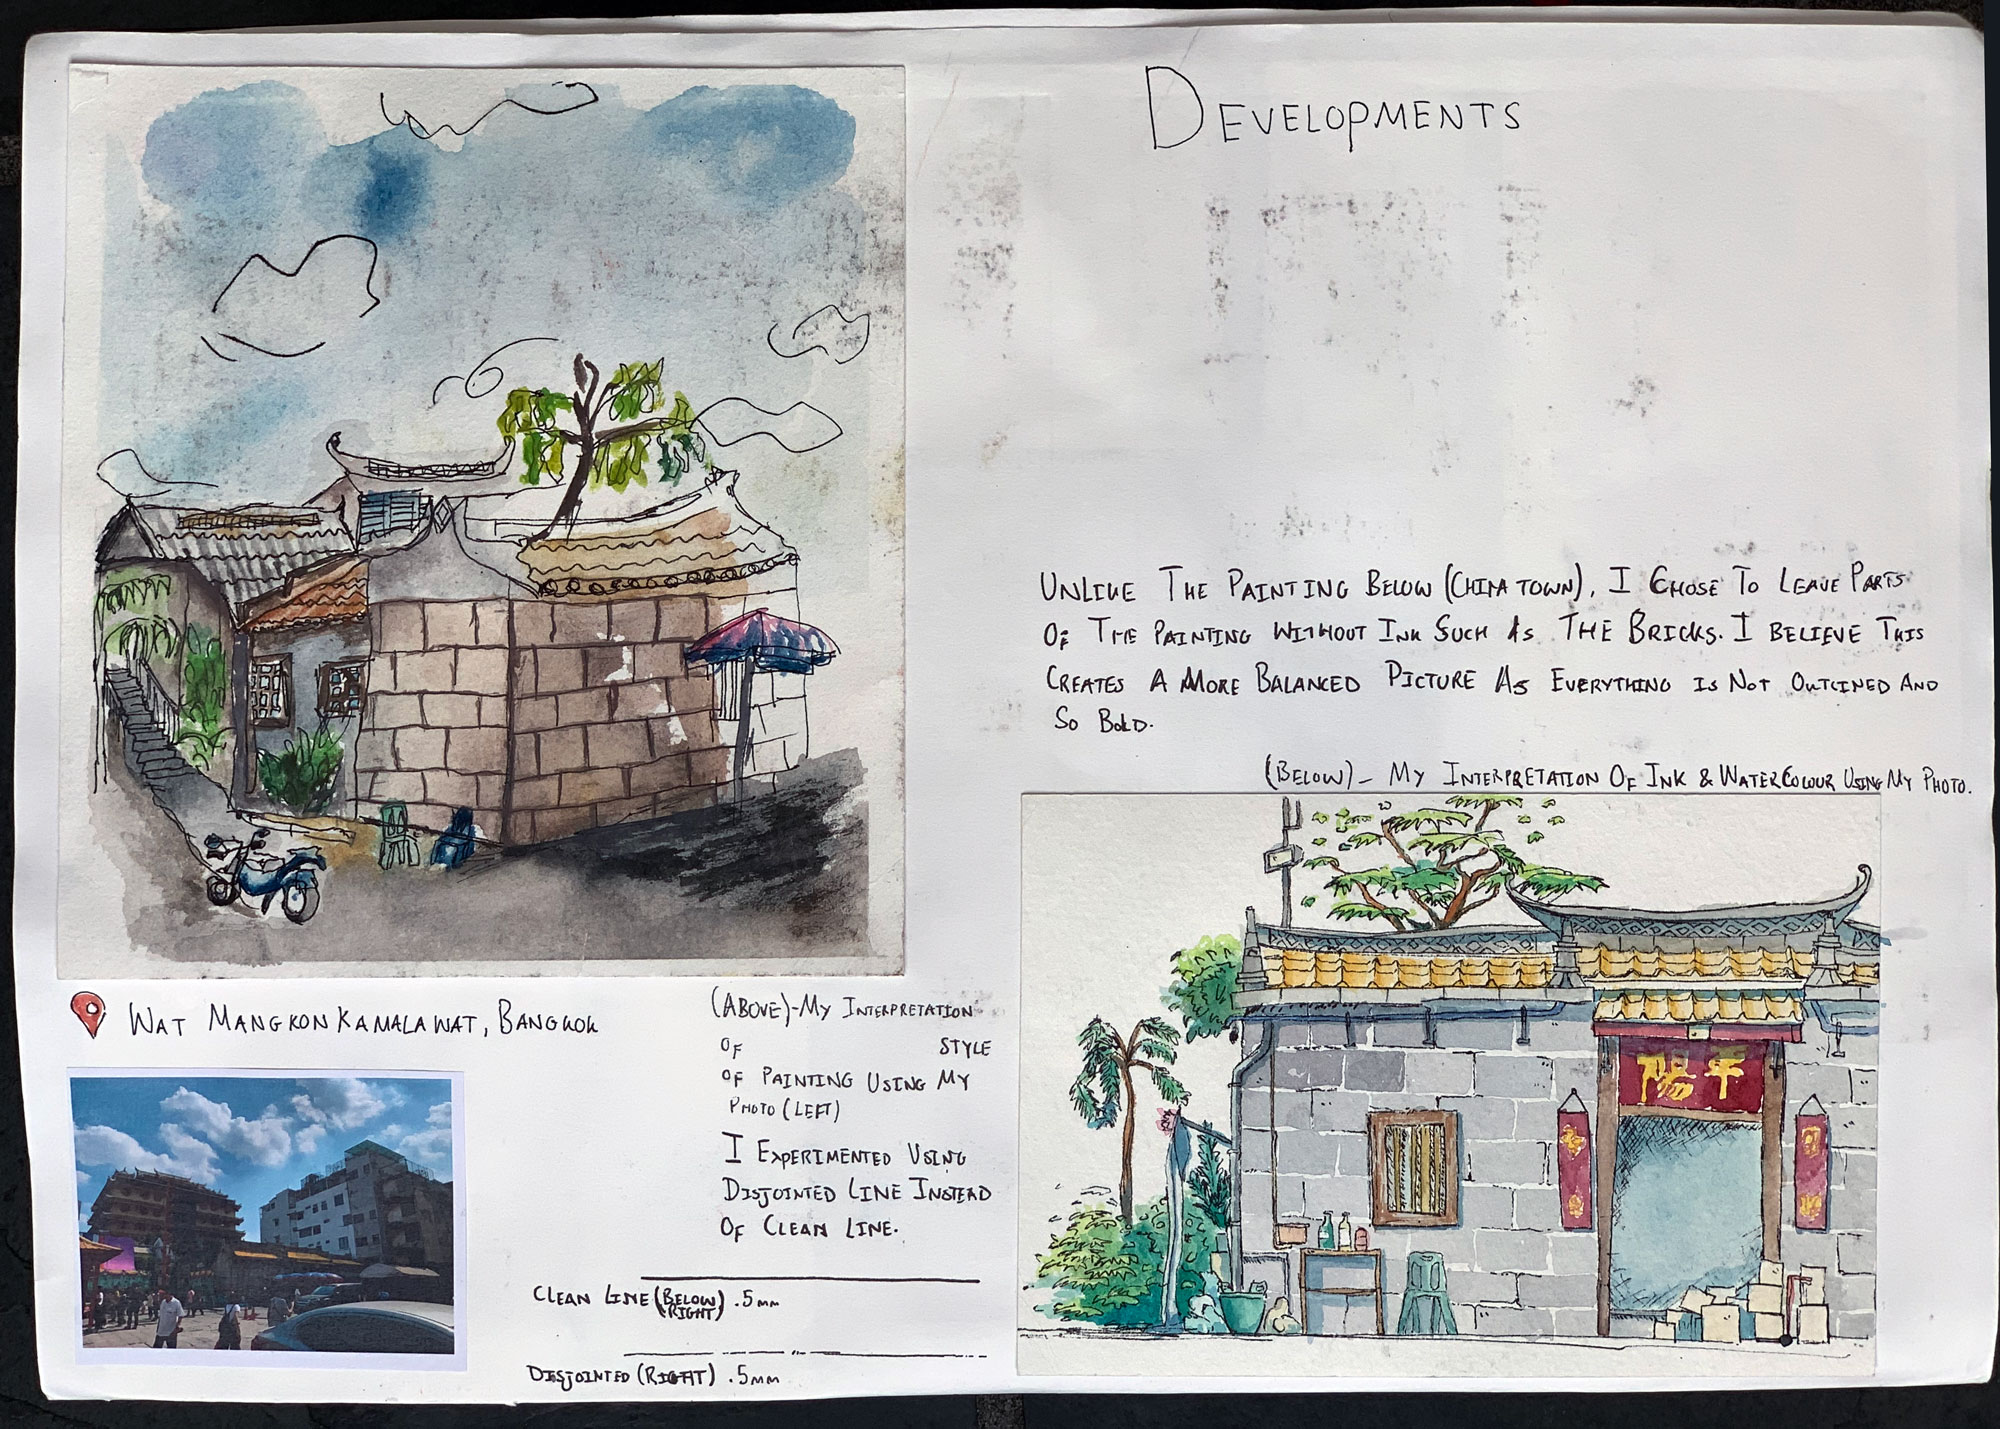 DEVELOPMENTS
UNLIKE THE PAINTING BELOW (CHINA TOWN), I CHOSE TO LEAVE PARTS
OF THE PAINTING WITHOUT INK SUCH AS THE BRICKS. I BELIEVE THIS
CREATES A MORE BALANCED PICTURE AS EVERYTHING IS NOT OUTLINED AND
SO BOLD.
(BELOW) - MY INTERPRETATION OF INK & WATERCOLOUR USING MY PHOTO.
陽平
WAT MANGKON KAMALAWAT, BANGKOK
(ABOVE) - MY INTERPRETATION
OF STYLE
OF PAINTING USING MY
PHOTO (LEFT)
I EXPERIMENTED USING
DISJOINTED LINE INSTEAD
OF CLEAN LINE.
CLEAN LINE (BELOW RIGHT) .5mm
DISJOINTED (RIGHT) .5mm